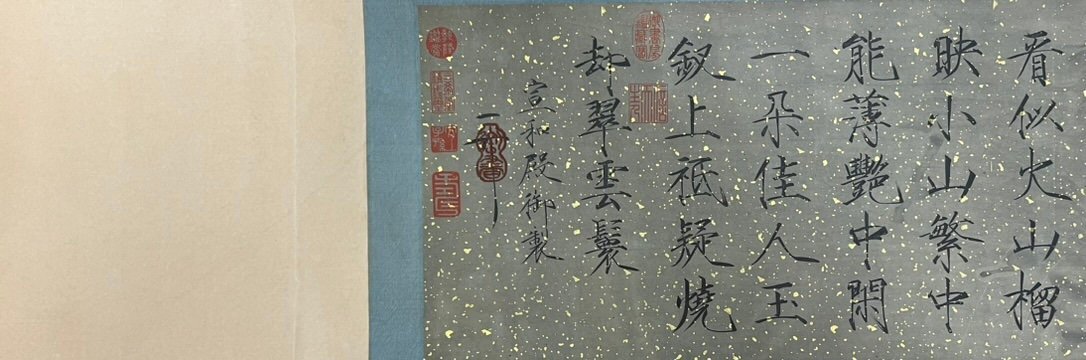 看似火山榴
映小山繁中
能薄艷中閑
一朵佳人玉
釵上祗疑燒
却翠雲鬟
宣和殿御製